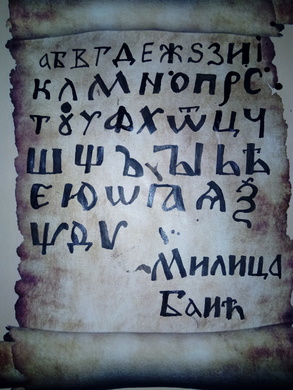 а Б В Г Д Е Ж Ѕ З И І
К Л М Н О П Р С
Т Ꙋ У Ф Х Ѿ Ц Ч
Ш Щ Ъ Ꙑ Ь Ѣ
Є Ю Ѡ Ꙗ Ѧ Ѯ
Ѱ Д Ѵ
Милица
Баић